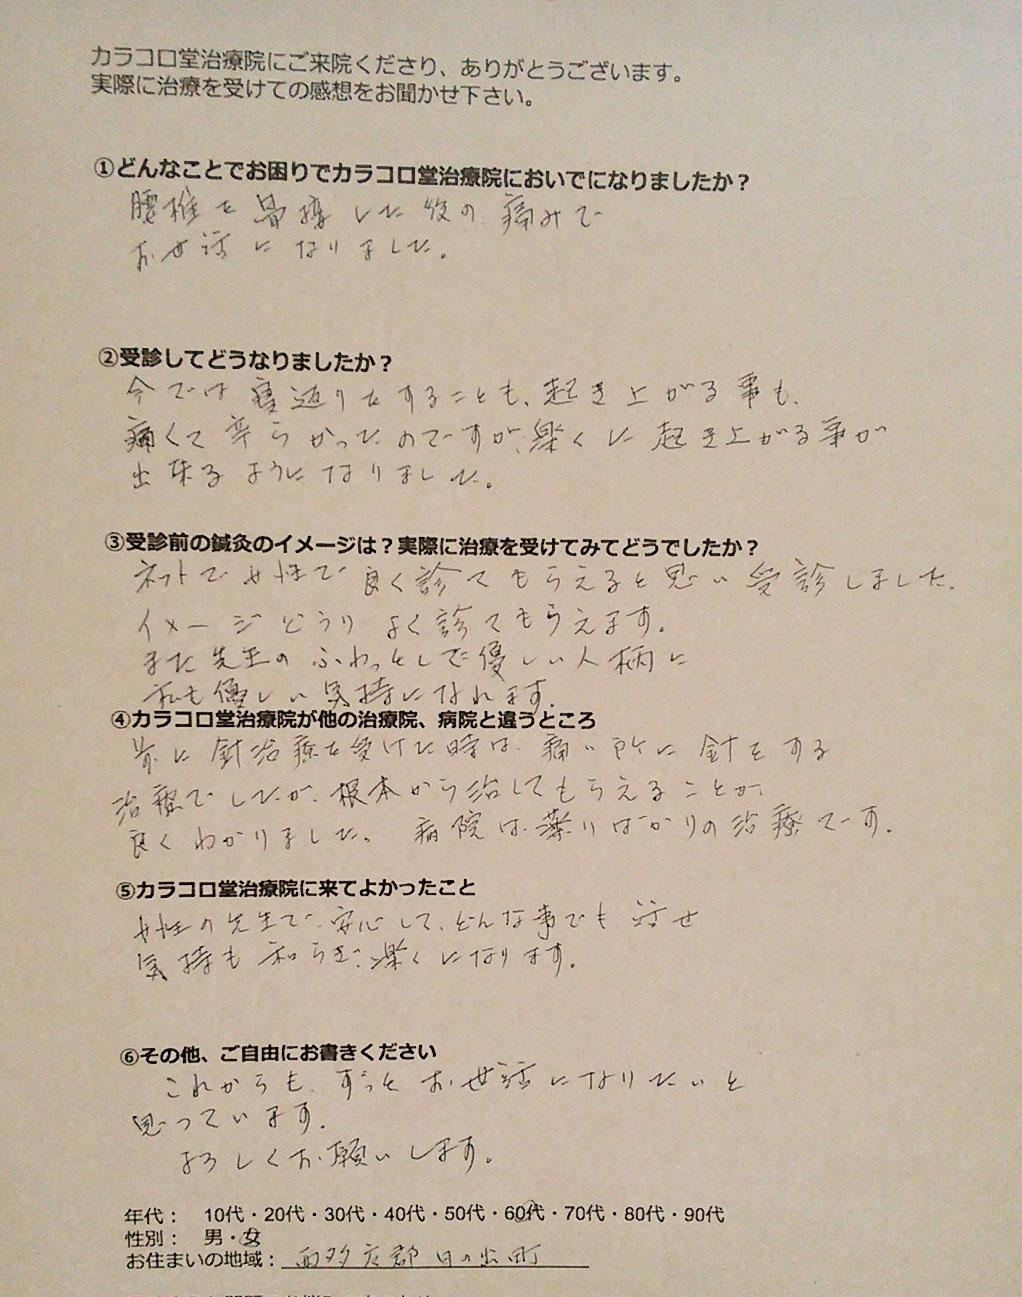 カラコロ堂治療院にご来院くださり、ありがとうございます。
実際に治療を受けての感想をお聞かせ下さい。
①どんなことでお困りでカラコロ堂治療院においでになりましたか?
腰椎を骨接した後の痛みで
お世話になりました。
②受診してどうなりましたか?
今では寝返りをすることも、起き上がる事も、
痛くて辛らかったのですが、楽くに起き上がる事が
出来るようになりました。
③受診前の鍼灸のイメージは?実際に治療を受けてみてどうでしたか?
ネットで女性で良く診てもらえると思い受診しました。
イメージどうりよく診てもらえます。
また先生のふわっとして優しい人柄に
私も優しい気持になれます。
④カラコロ堂治療院が他の治療院、病院と違うところ
前に針治療を受けた時は、痛い所に針をする
治療でしたが、根本から治してもらえることが、
良くわかりました。病院は薬りばかりの治療です。
⑤カラコロ堂治療院に来てよかったこと
女性の先生で、安心して、どんな事でも話せ
気持も和らぎ、楽くになります。
⑥その他、ご自由にお書きください
これからも、ずっとお世話になりたいと
思っています。
よろしくお願いします。
年代: 10代・20代・30代・40代・50代・60代・70代・80代・90代
性別: 男・女
お住まいの地域:西多摩郡日の出町